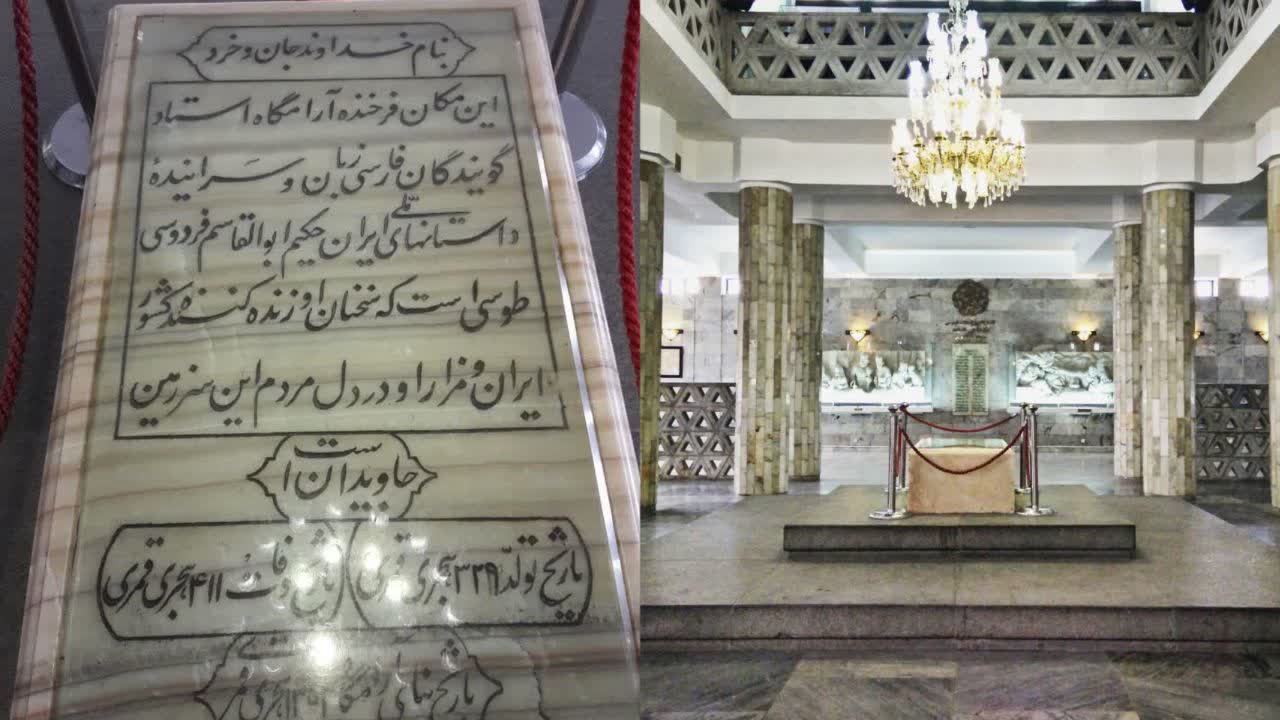 بنام خداوند جان و خرد
این مکان فرخنده آرامگاه استاد
گویندگان فارسی زبان و سراینده
داستانهای ملی ایران حکیم ابوالقاسم فردوسی
طوسی است که سخنان او زنده کننده کشور
ایران و مزار او در دل مردم این سرزمین
جاویدان است
تاریخ تولد ۳۲۹ هجری قمری
تاریخ وفات ۴۱۱ هجری قمری
تاریخ بنای آرامگاه هجری